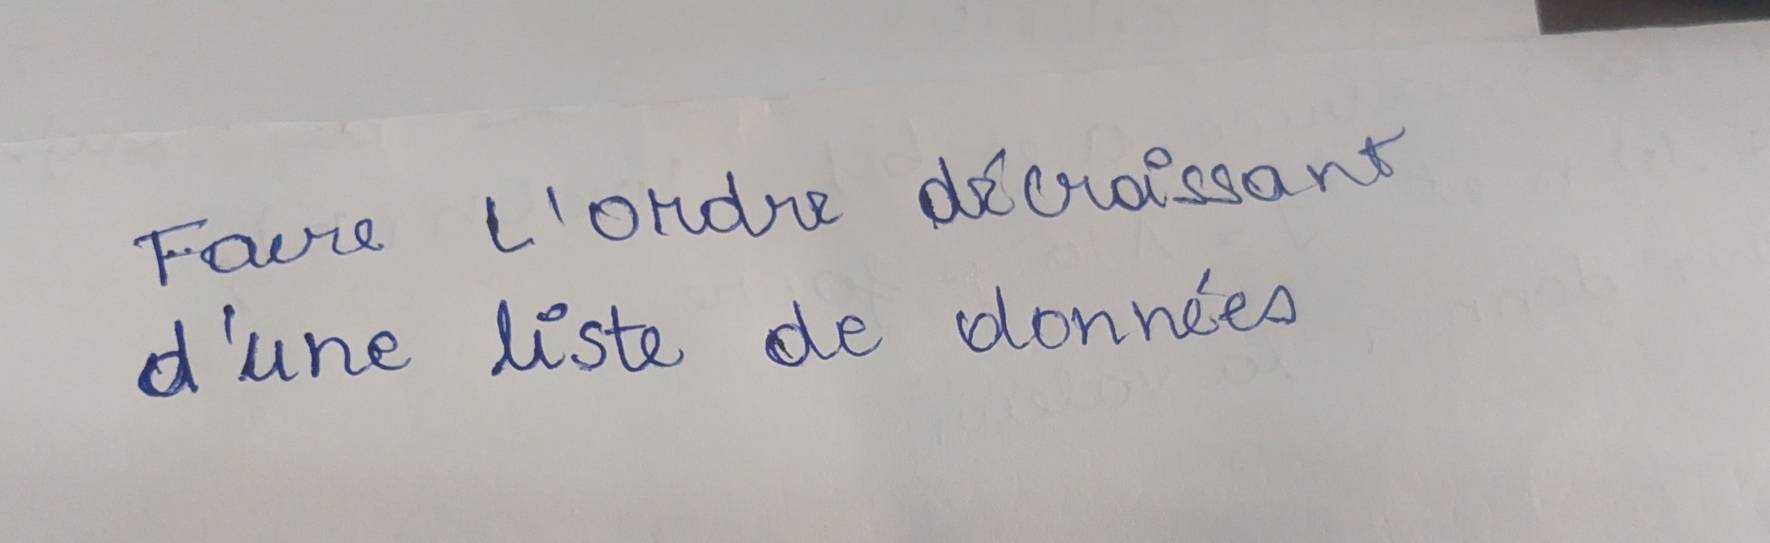 Faire L'ordre décroissant
d'une liste de données